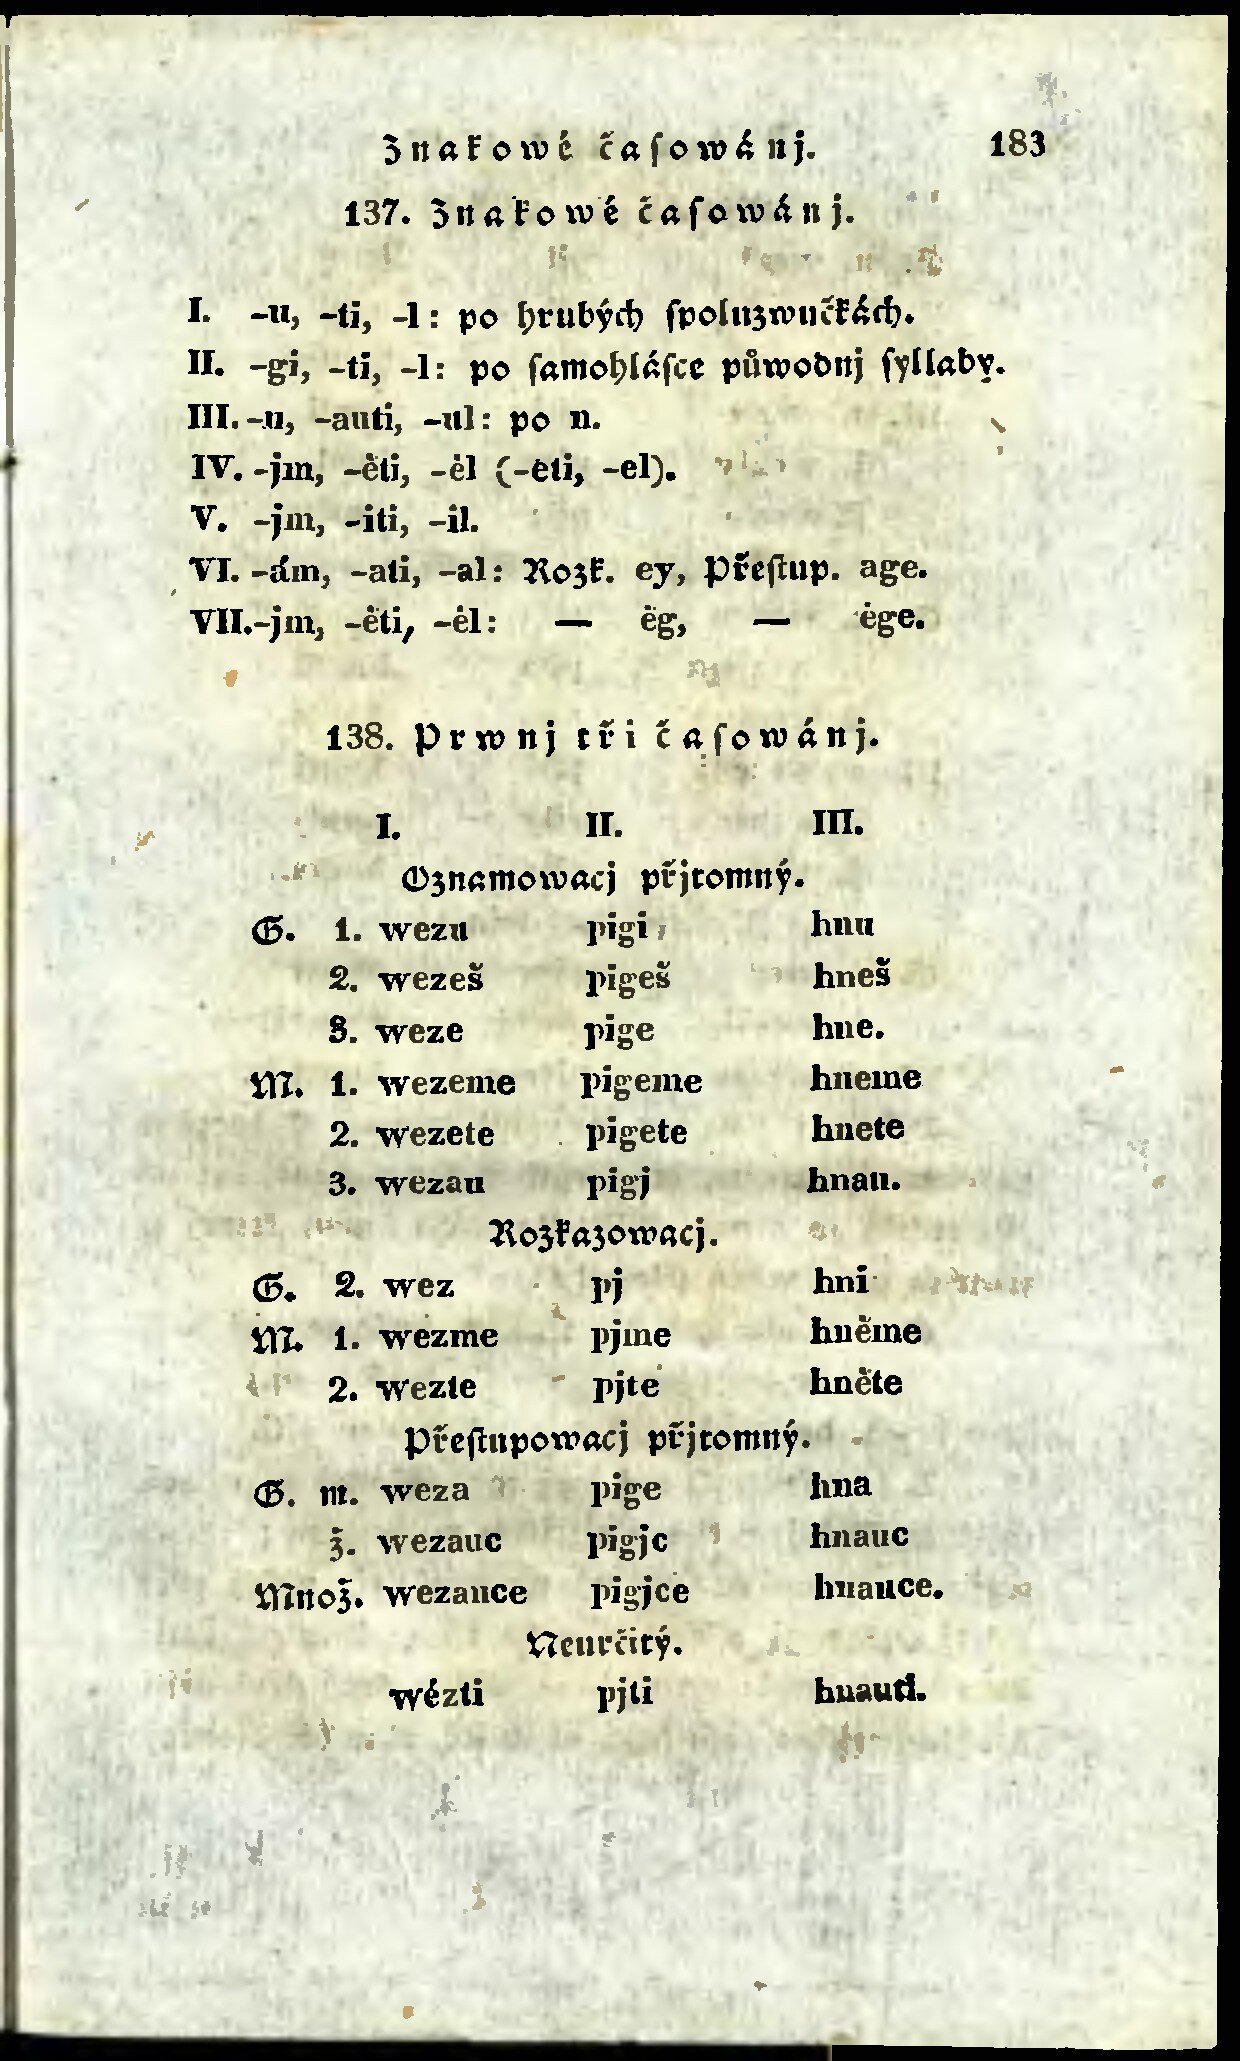 Znakowé časowánj. 183
137. Znakowé časowánj.
I. -u, -ti, -l: po hrubých spoluzwučkách.
II. -gi, -ti, -l: po samohlásce půwodnj syllaby.
III. -u, -auti, -ul: po n.
IV. -jm, -ěti, -ěl (-eti, -el).
V. -jm, -iti, -il.
VI. -ám, -ati, -al: Rozk. ey, Přestup. age.
VII. -jm, -ěti, -ěl: — ěg, — ěge.
138. Prwnj tři časowánj.
I. II. III.
Oznamowacj přjtomný.
G. 1. wezu pigi hnu
2. wezeš pigeš hneš
3. weze pige hne.
M. 1. wezeme pigeme hneme
2. wezete pigete hnete
3. wezau pigj hnau.
Rozkazowacj.
G. 2. wez pj hni
M. 1. wezme pjme hněme
2. wezte pjte hněte
Přestupowacj přjtomný.
G. m. weza pige hna
ž. wezauc pigjc hnauc
Množ. wezauce pigjce hnauce.
Neurčitý.
wézti pjti hnauti.